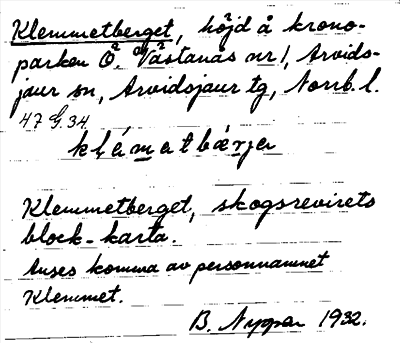 Klemmetberget, höjd å krono-
parken Ö. Västanås nr 1, Arvids-
jaur sn, Arvidsjaur tg, Norrb. l.
47 G. 34
klématbærja
Klemmetberget, skogsrevirets
block-karta.
Anses komma av personnamnet
Klemmet.
B. 1932.